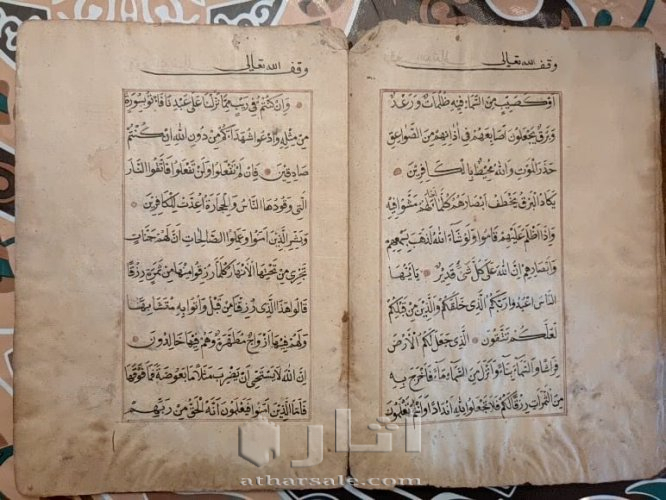 وقف الله تعالى
او كصيب من السماء فيه ظلمات ورعد
وبرق يجعلون اصابعهم في اذانهم من الصواعق
حذر الموت والله محيط بالكافرين
يكاد البرق يخطف ابصارهم كلما اضاء لهم مشوا فيه
واذا اظلم عليهم قاموا ولو شاء الله لذهب بسمعهم
وابصارهم ان الله على كل شئ قدير يا ايها
الناس اعبدوا ربكم الذى خلقكم والذين من قبلكم
لعلكم تتقون الذى جعل لكم الارض
فراشا والسماء بناء وانزل من السماء ماء فاخرج به
من الثمرات رزقا لكم فلا تجعلوا لله اندادا وانتم تعلمون
وقف الله تعالى
وان كنتم في ريب مما نزلنا على عبدنا فاتوا بسورة
من مثله وادعوا شهداءكم من دون الله ان كنتم
صادقين فان لم تفعلوا ولن تفعلوا فاتقوا النار
التى وقودها الناس والحجارة اعدت للكافرين
وبشر الذين امنوا وعملوا الصالحات ان لهم جنات
تجرى من تحتها الانهار كلما رزقوا منها من ثمرة رزقا
قالوا هذا الذى رزقنا من قبل واتوا به متشابها
ولهم فيها ازواج مطهرة وهم فيها خالدون
ان الله لا يستحيى ان يضرب مثلا ما بعوضة فما فوقها
فاما الذين امنوا فيعلمون انه الحق من ربهم
آثار
atharsale.com